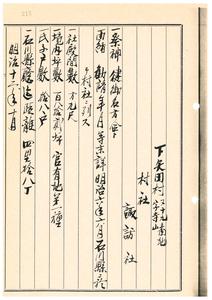 215
下矢田村
村社
諏訪社
一祭神 健御名方命
一由緒 勧請年月等不詳明治六年六月石川縣ニ於
テ村社ニ列ス
一社殿間数 方九尺
一境内坪数 百八拾弐坪 官有地第一種
一氏子戸数 拾八戸
一石川縣廳迄距離 四里拾八丁
明治十二年十月